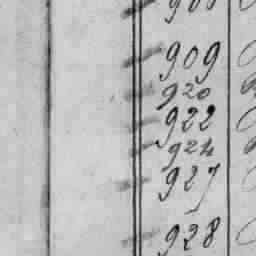 909
920
922
924
927
928